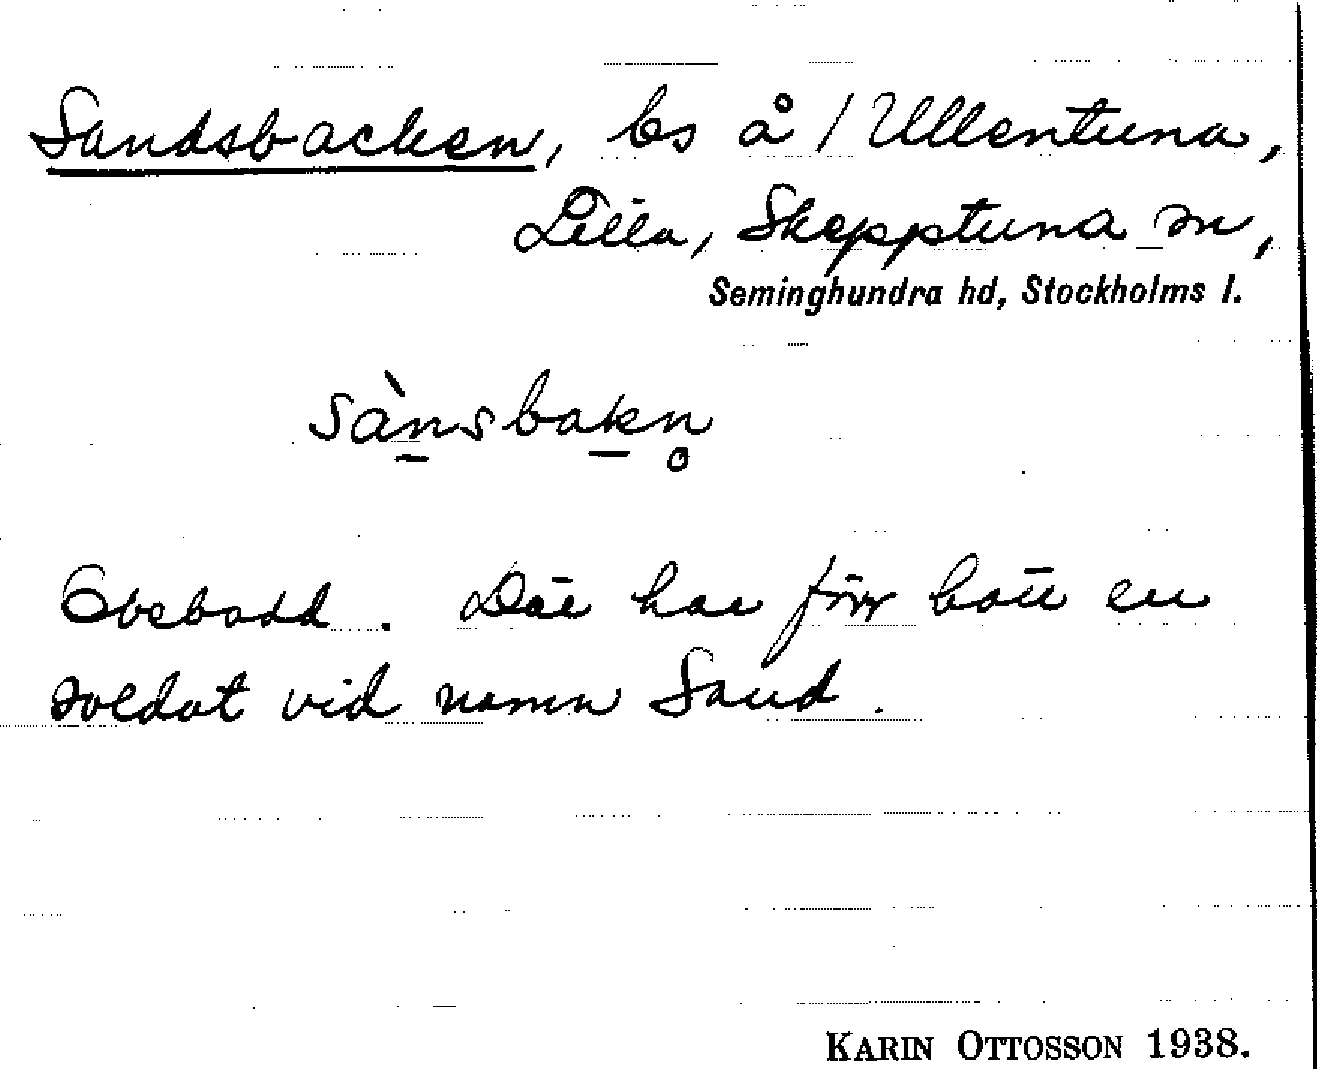 Sandsbacken, bs å / Ullentuna,
Lilla, Skepptuna sn,
Seminghundra hd, Stockholms l.
sànsbakn̥
Obebodd. Där har förr bott en
soldat vid namn Sand.
KARIN OTTOSSON 1938.